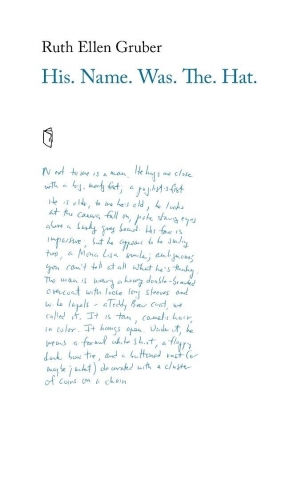 Ruth Ellen Gruber
His. Name. Was. The. Hat.
Next to me is a man. He hugs me close
with a big, meaty fist, a pugilist's fist
He is older, to me he's old, he looks
at the camera full on, pale staring eyes
above a bushy grey beard. His face is
impassive, but he appears to be smiling
too, a Mona Lisa smile; ambiguous
you can't tell at all what he's thinking.
The man is wearing a heavy double-breasted
overcoat with loose long sleeves and
wide lapels - a Teddy Bear coat, we
called it. It is tan, camel's hair,
in color. It hangs open. Under it, he
wears a formal white shirt, a floppy
dark bow tie, and a buttoned vest (or
maybe jacket) decorated with a cluster
of coins on a chain